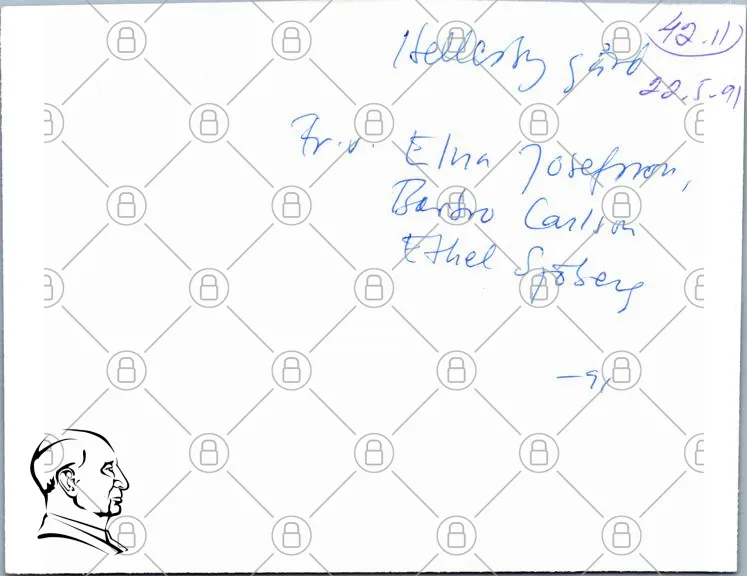 gård
42.11)
22.5.91
Fr. v. Elna Josefsson,
Barbro Carlson
Ethel Sjöberg
-91